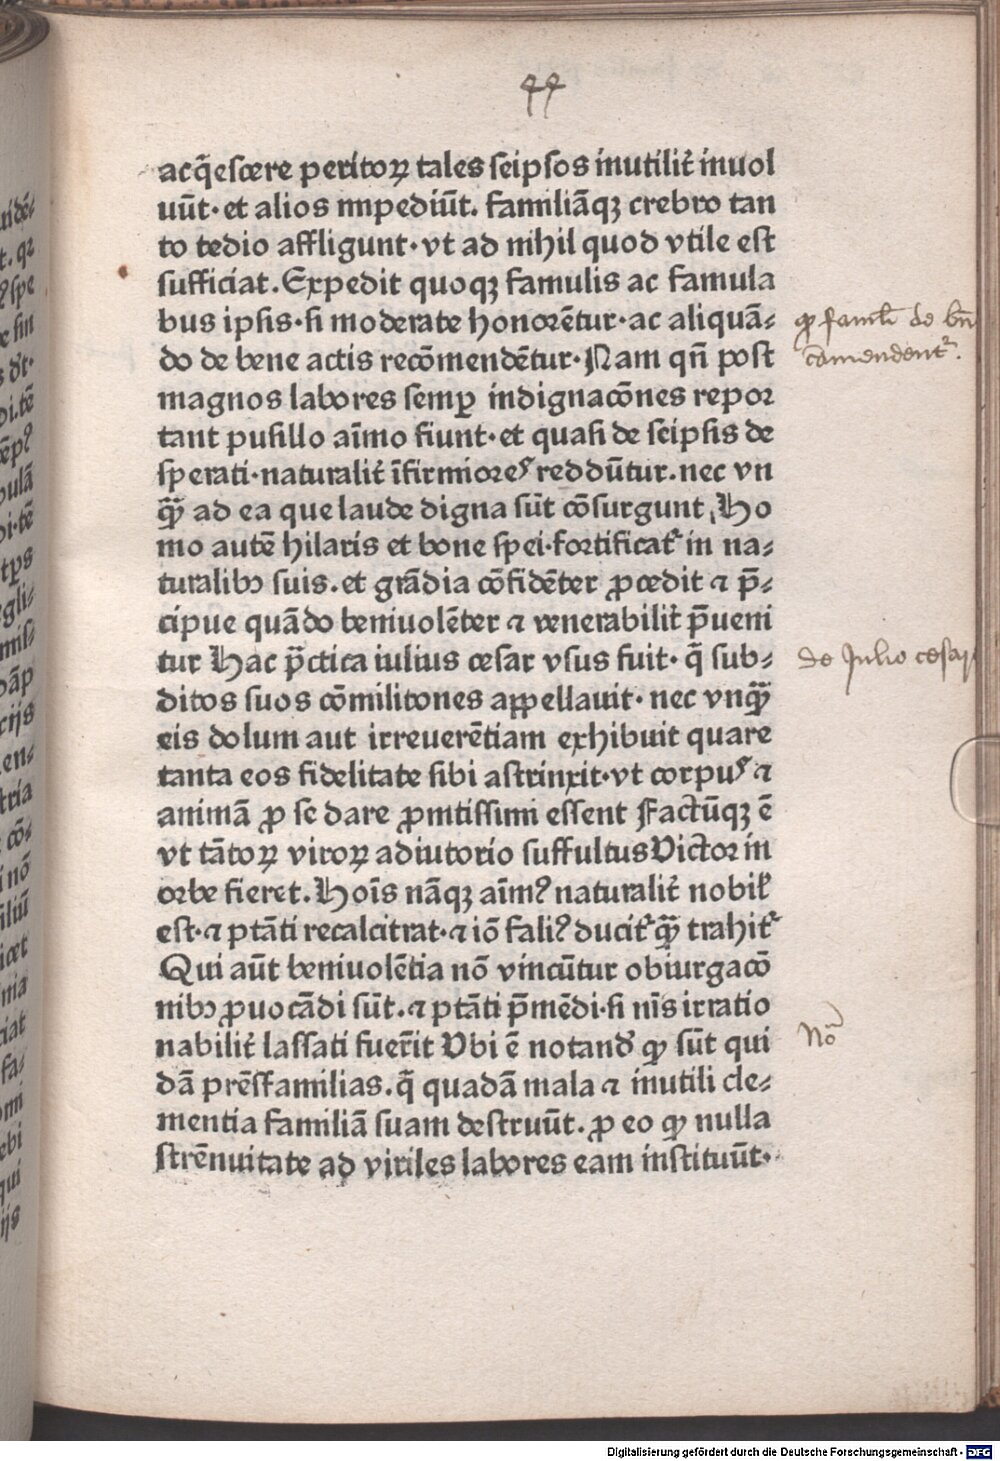 44
acq̄escere peritoꝝ tales seipsos inutilit̄ inuol
uūt. et alios impediūt. familiāqꝫ crebro tan
to tedio affligunt. vt ad nihil quod vtile est
sufficiat. Expedit quoqꝫ famulis ac famula
bus ipsis. si moderate honorētur. ac aliquā⸗
do de bene actis recōmendētur. Nam qn̄ post
magnos labores semꝑ indignacōnes repor
tant pusillo aīmo fiunt. et quasi de seipsis de
sperati. naturalit̄ īfirmiores reddūtur. nec vn
qꝫ̄ ad ea que laude digna sūt cōsurgunt, Ho
mo autē hilaris et bone spei. fortificat᷑ in na⸗
turalibꝫ suis. et grādia cōfidēter ꝓcedit ⁊ p̄⸗
cipue quādo beniuolēter ⁊ venerabilit̄ p̄ueni
tur Hac p̄ctica iulius cesar vsus fuit. q̄ sub⸗
ditos suos cōmilitones appellauit. nec vnqꝫ̄
eis dolum aut irreuerētiam exhibuit quare
tanta eos fidelitate sibi astrinxit. vt corpus ⁊
animā ꝓ se dare ꝓmtissimi essent Factūqꝫ ē
vt tātoꝝ viroꝝ adiutorio suffultus Victor in
orbe fieret. Hoīs nāqꝫ aīmꝰ naturalit̄ nobil᷑
est. ⁊ ptāti recalcitrat. ⁊ iō faliꝰ ducit᷑ qꝫ̄ trahit᷑
Qui aūt beniuolētia nō vincūtur obiurgacō
nibꝫ ꝓuocādi sūt. ⁊ ptāti p̄mēdi. si nīs irratio
nabilit̄ lassati fuer̄it Vbi ē notand̄ ꝙ sūt qui
dā prēsfamilias. q̄ quadā mala ⁊ inutili cle⸗
mentia familiā suam destruūt. ꝓ eo ꝙ nulla
strēnuitate ad viriles labores eam instituūt.
ꝙ famuli de bn̄
cōmendent᷑.
de Julio cesar
Nō
Digitalisierung gefördert durch die Deutsche Forschungsgemeinschaft - DFG